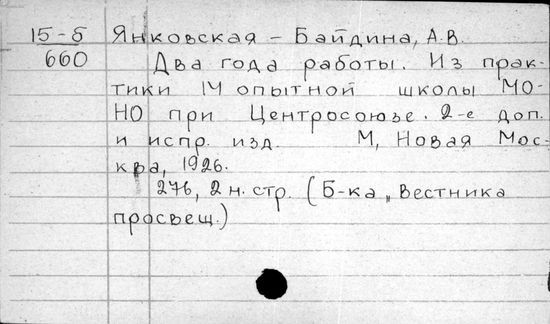 15-б Янковская - Байдина, А.В.
660 Два года работы. Из прак-
тики IМ опытной школы МО-
НО при Центросоюзе. 2-е доп.
и испр. изд. М, Новая Мос-
ква, 1926.
276, 2 н. стр. (Б-ка „Вестника
просвещ.)